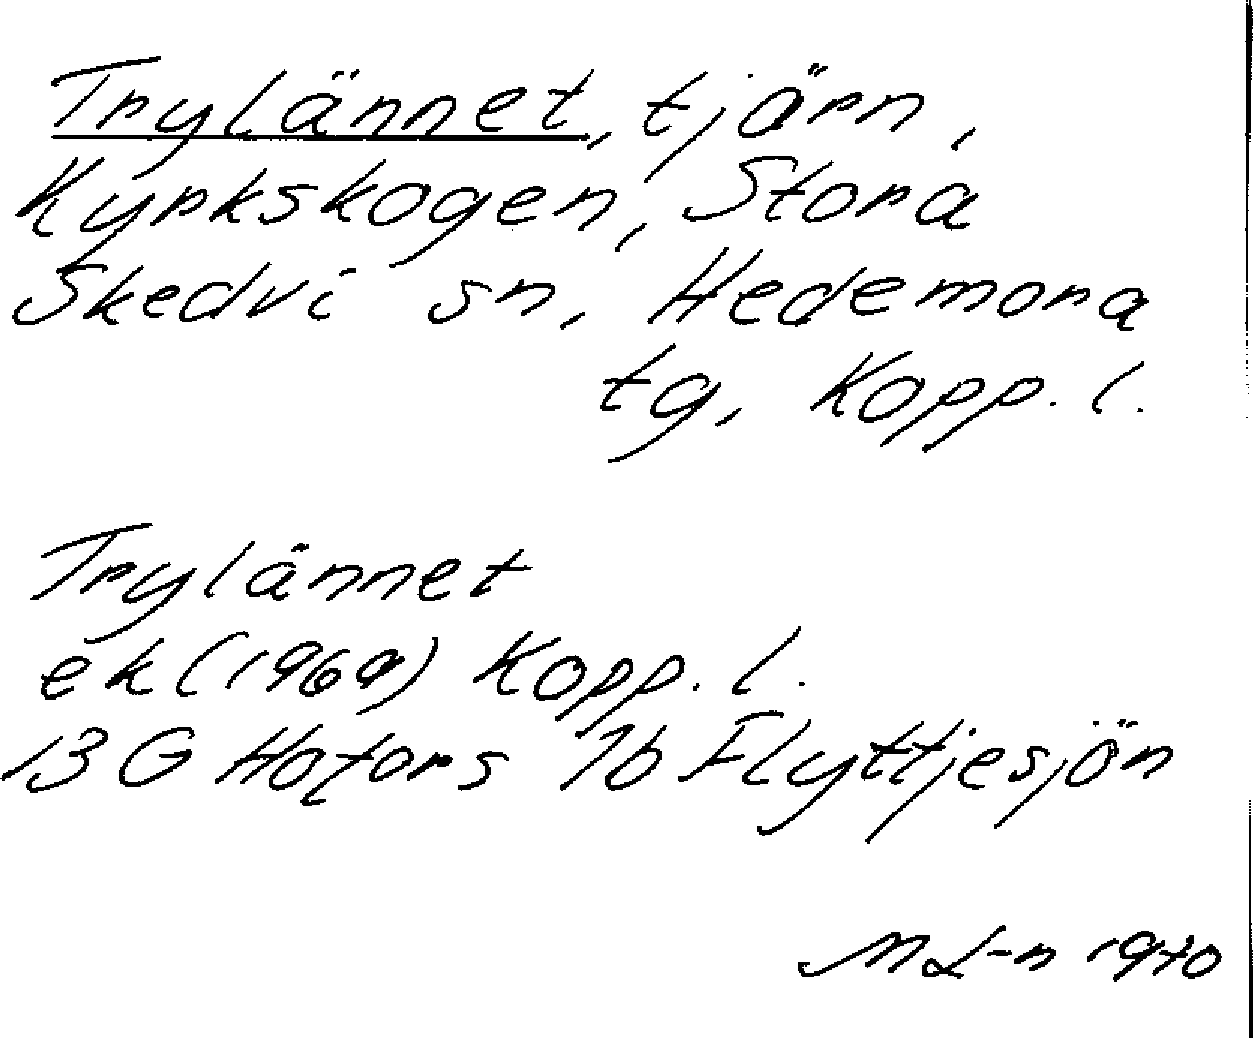 Trylännet, tjärn,
Kyrkskogen, Stora
Skedvi sn, Hedemora
tg, Kopp. l.
Trylännet
ek (1969) Kopp. l.
13 G Hofors 7b Flyttjesjön
M L-n 1970